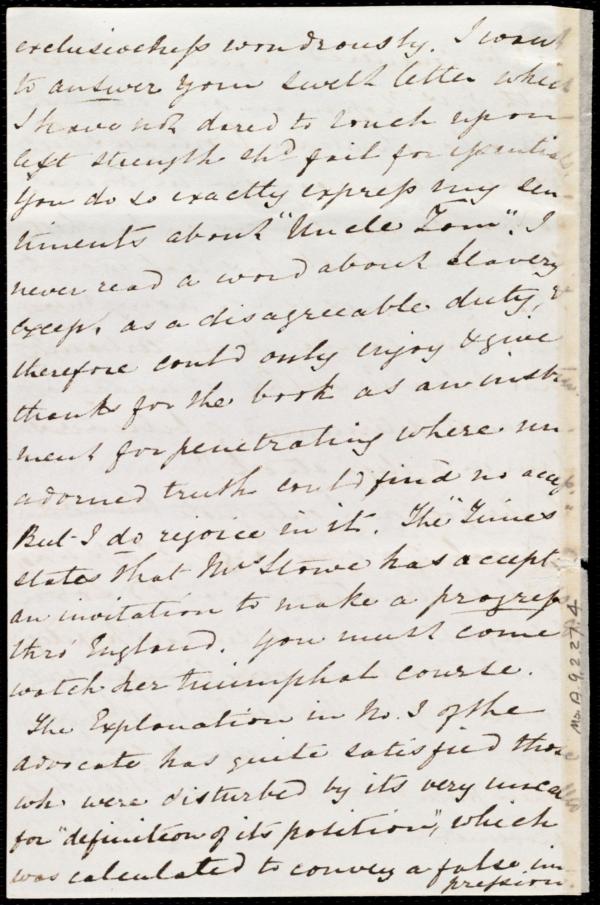 exclusiveness wondrously. I want
to answer your sweet letter which
I have not dared to touch upon
lest strength shd fail for essential
You do so exactly express my sen
timents about "Uncle Tom". I
never read a word about Slavery
except, as a disagreeable duty, &
therefore could only enjoy & give
thanks for the book as an instru
ment for penetrating where un
adorned truth could find no accep.
But I do rejoice in it. The "Times"
states that Mrs Stowe has accept
an invitation to make a progress
thro' England. You must come
watch her triumphal course.
The Explanation in No. I of the
Advocate has quite satisfied those
wh. were disturbed by its very uncal
for "definition of its position", which
was calculated to convey a false im
pression.
Ms. A. 9. 2. 27. 4